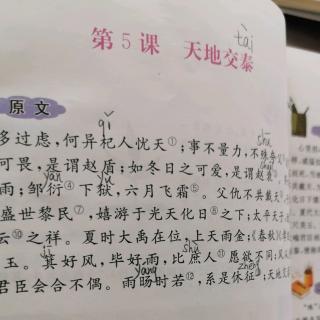 tài
第5课 天地交泰
原文
qǐ
多过虑,何异杞人忧天①;事不量力,不殊夸父
可畏,是谓赵盾;如冬日之可爱,是谓赵衰
yǎn
雨;邹衍④下狱,六月飞霜⑤。父仇不共戴天
盛世黎民⑦,嬉游于光天化日⑧之下;太平天子
云⑩之祥。夏时大禹在位,上天雨金;《春秋》《孝
jī shù
玉。箕好风,毕好雨,比庶人⑪愿欲不同;风
yáng zhēng
君臣会合不偶。雨旸时若⑫,系是休征;天地交